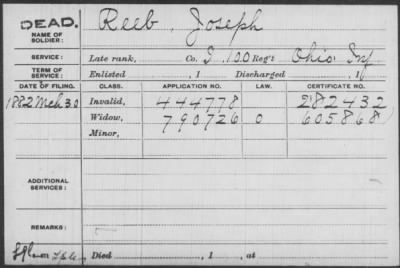 DEAD. Reeb, Joseph
NAME OF SOLDIER:
SERVICE: Late rank, Co. I, 100 Reg't Ohio Inf
TERM OF SERVICE: Enlisted , 1 Discharged , 1
DATE OF FILING. CLASS. APPLICATION NO. LAW. CERTIFICATE NO.
1882 Mch 30 Invalid, 444778 282432
Widow, 790726 0 605868
Minor,
ADDITIONAL SERVICES:
REMARKS:
Died , 1 , at